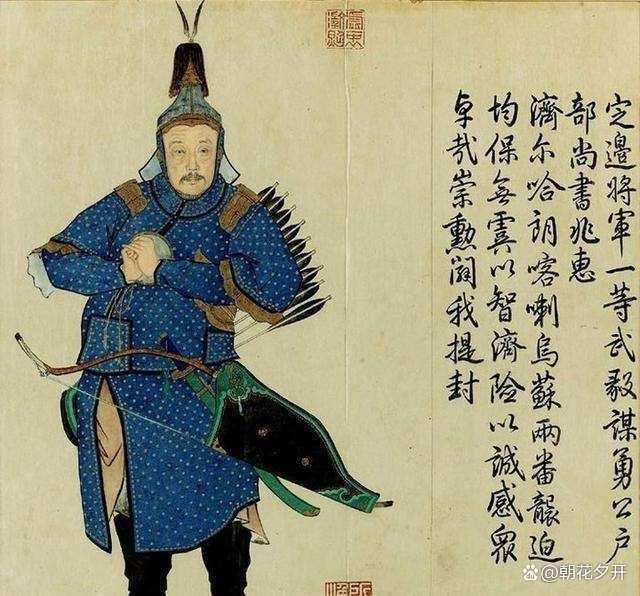 定邊將軍一等武毅謀勇公戶
部尚書兆惠
濟尔哈朗喀喇烏蘇兩番襲迫
均保無虞以智濟險以誠感眾
卓哉崇勲闢我提封
@朝花夕开